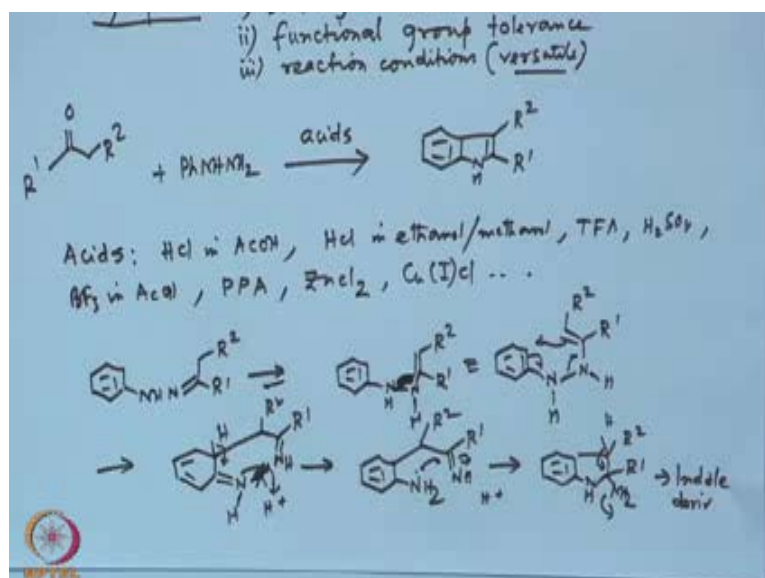 ii) functional group tolerance
iii) reaction conditions (versatile)
O
R¹ R² + PhNHNH₂ acids R² N H R¹
Acids: HCl in AcOH, HCl in ethanol/methanol, TFA, H₂SO₄,
BF₃ in AcOH, PPA, ZnCl₂, Cu(I)Cl ....
R² NH N R¹
R² N H R¹ N H
R² R¹ N N H H
H R² R¹ NH N H H+
R² R¹ NH₂ NH H+
H R² R¹ N H NH₂ → Indole
deriv
NPTEL